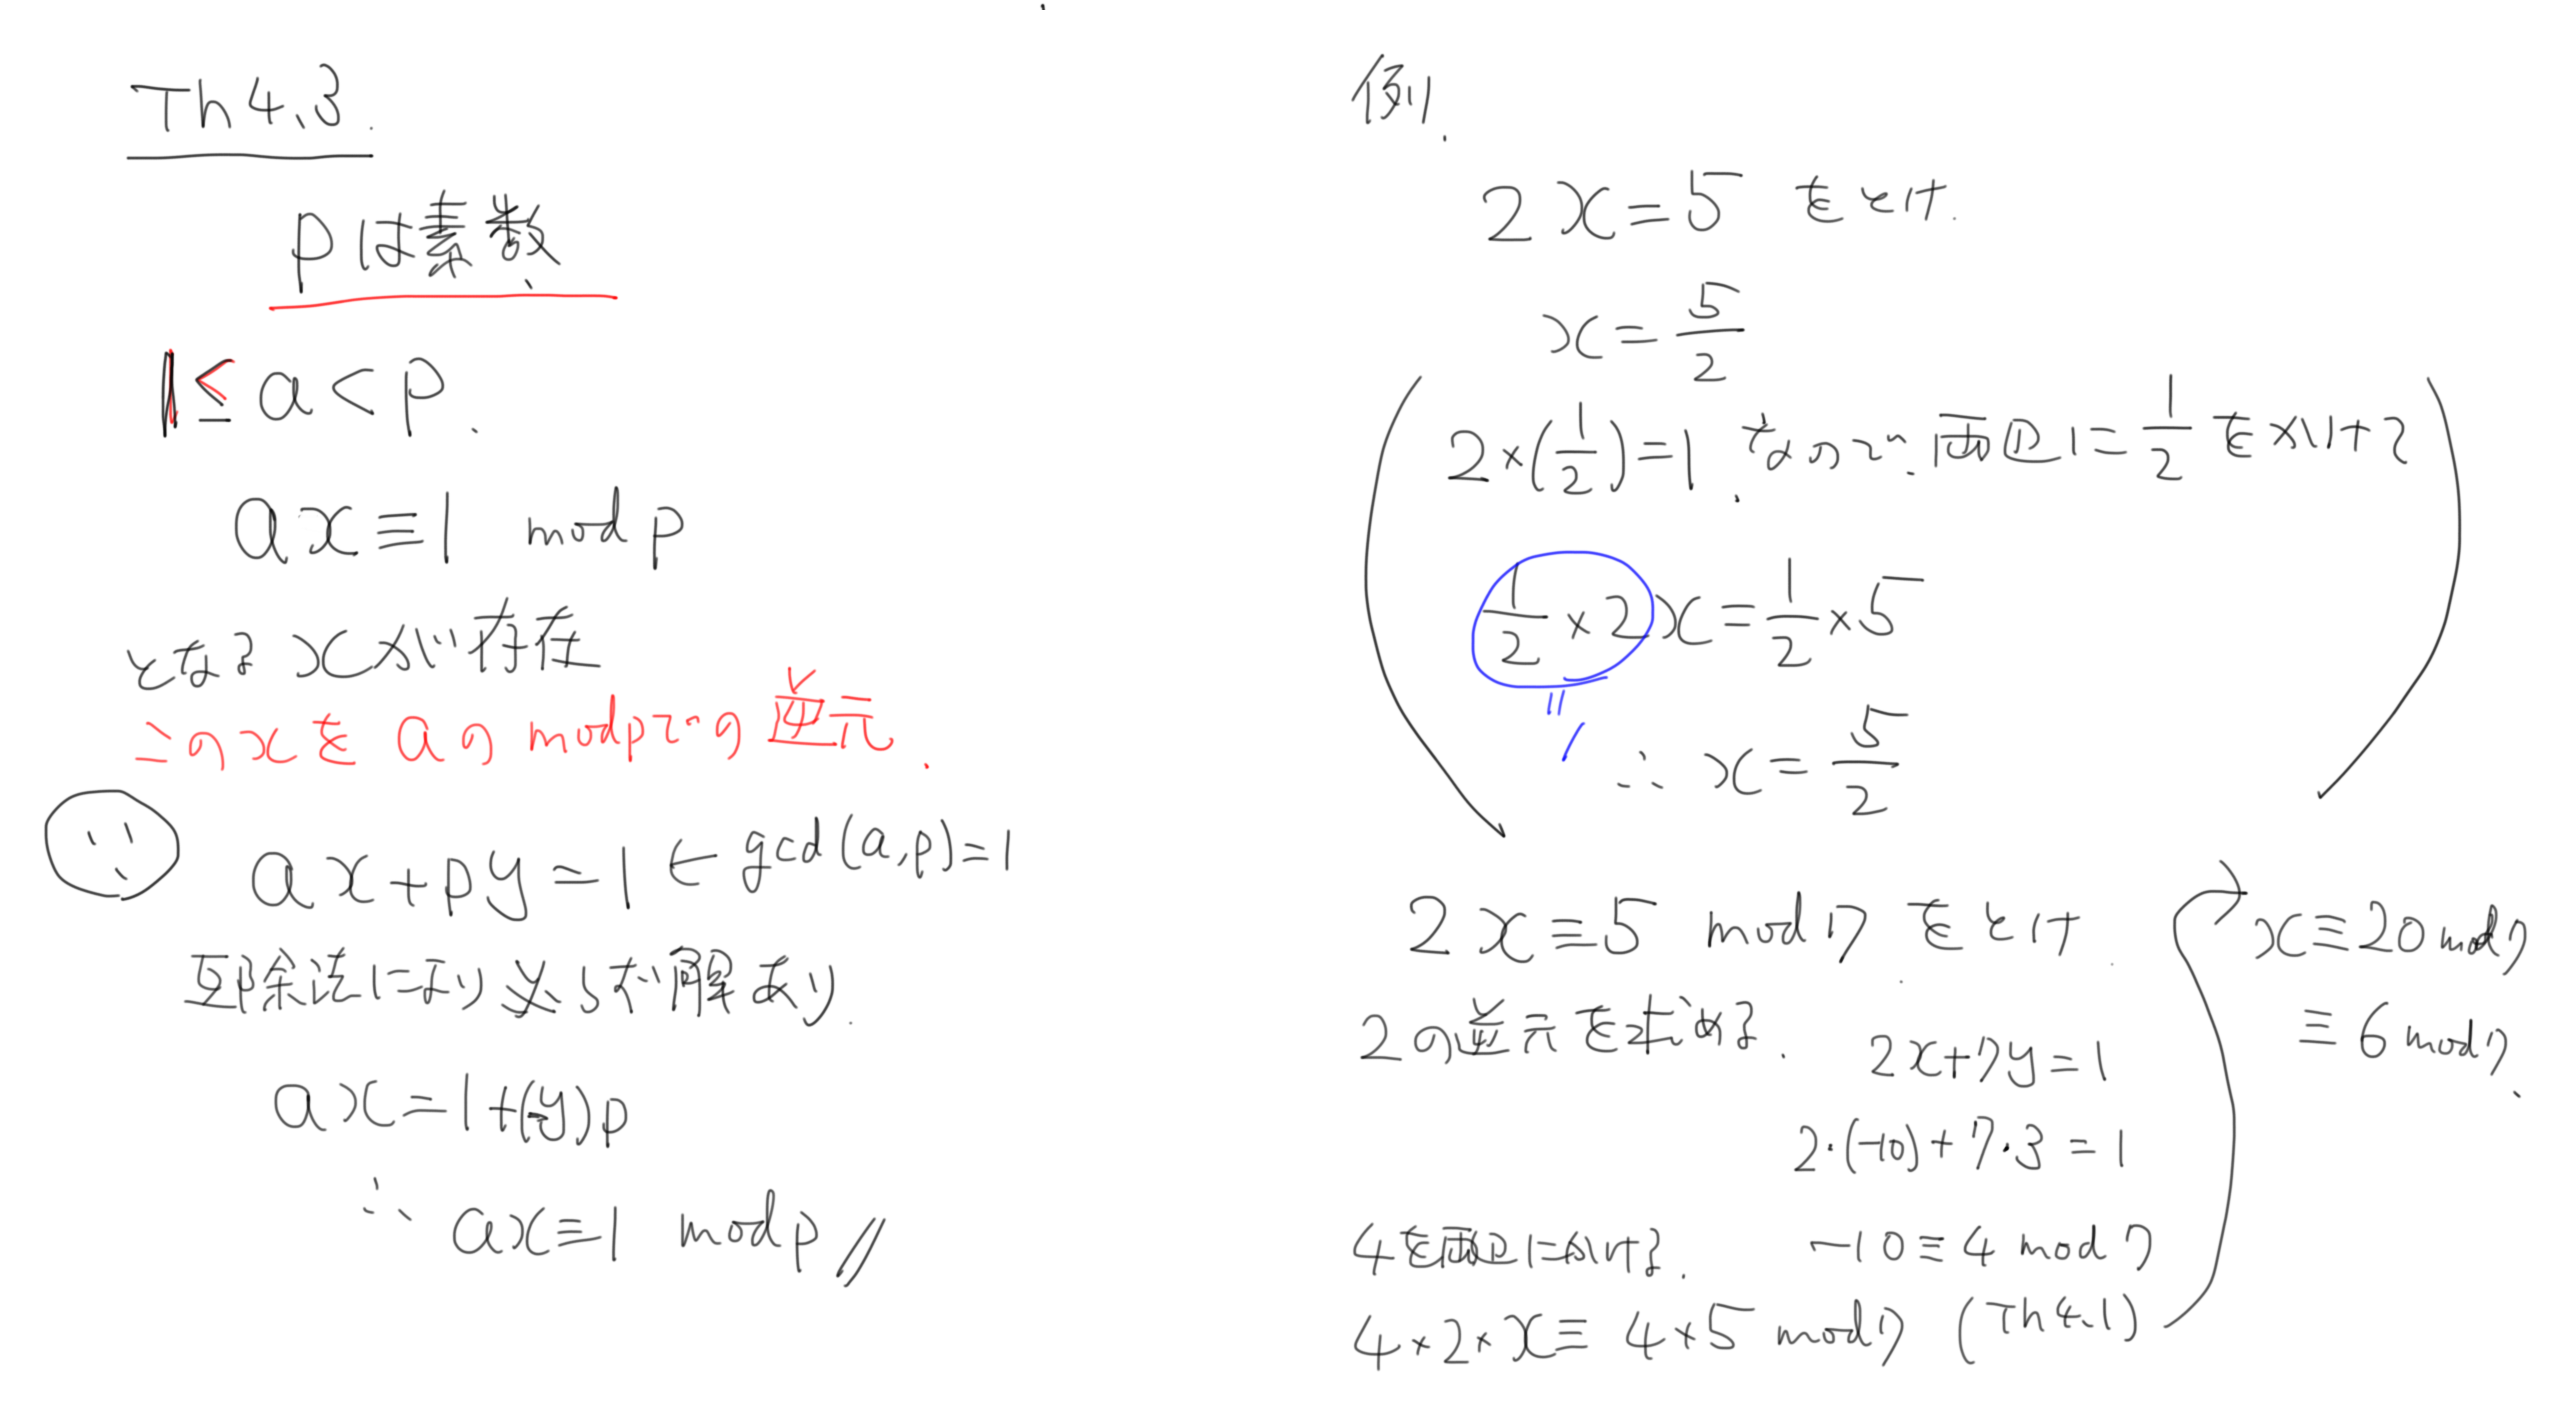 Th 4.3.
pは素数
1 ≦ a < p.
ax ≡ 1 mod p
となるxが存在
このxをaのmodpでの逆元.
∵
ax + py = 1 ← gcd(a,p)=1
互除法により必らず解あり.
ax = 1+(-y)p
∴ ax ≡ 1 mod p //
例.
2x = 5 をとけ.
x = 5/2
2×(1/2) = 1. なので. 両辺に 1/2 をかけて
1/2 × 2 x = 1/2 × 5
=
1
∴ x = 5/2
2x ≡ 5 mod 7 をとけ.
2の逆元を求める.
2x + 7y = 1
2・(-10) + 7・3 = 1
-10 ≡ 4 mod 7
4を両辺にかける.
4×2×x ≡ 4×5 mod 7 (Th 4.1)
x ≡ 20 mod 7
≡ 6 mod 7.